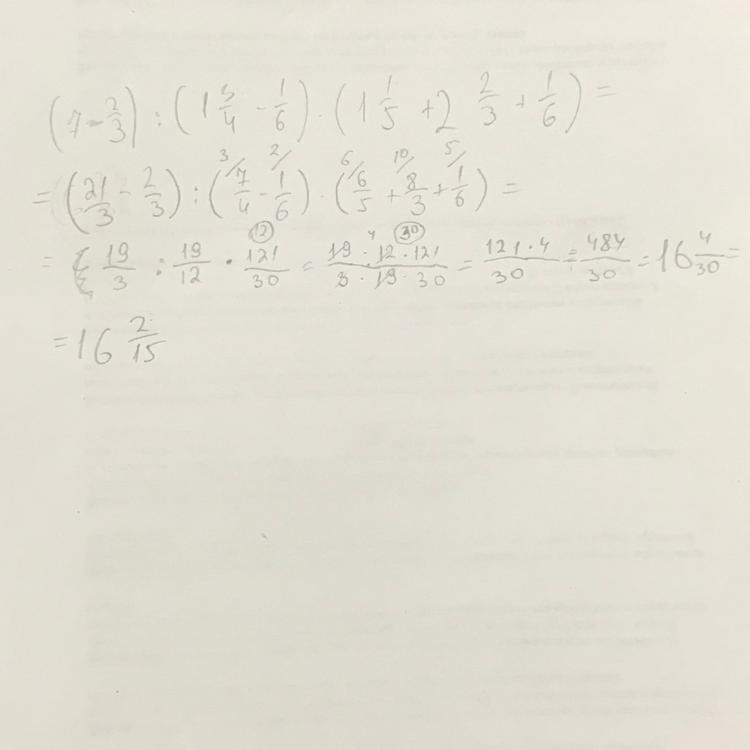 (7 - 2/3) : (1 3/4 - 1/6) · (1 1/5 + 2 2/3 + 1/6) =
= (21/3 - 2/3) : (3/ 7/4 - 2/ 1/6) · (6/ 6/5 + 10/ 8/3 + 5/ 1/6) =
= 19/3 : 19/12 · 121/30 = 19 · 12 · 121 / 3 · 19 · 30 = 121 · 4 / 30 = 484/30 = 16 4/30 =
= 16 2/15